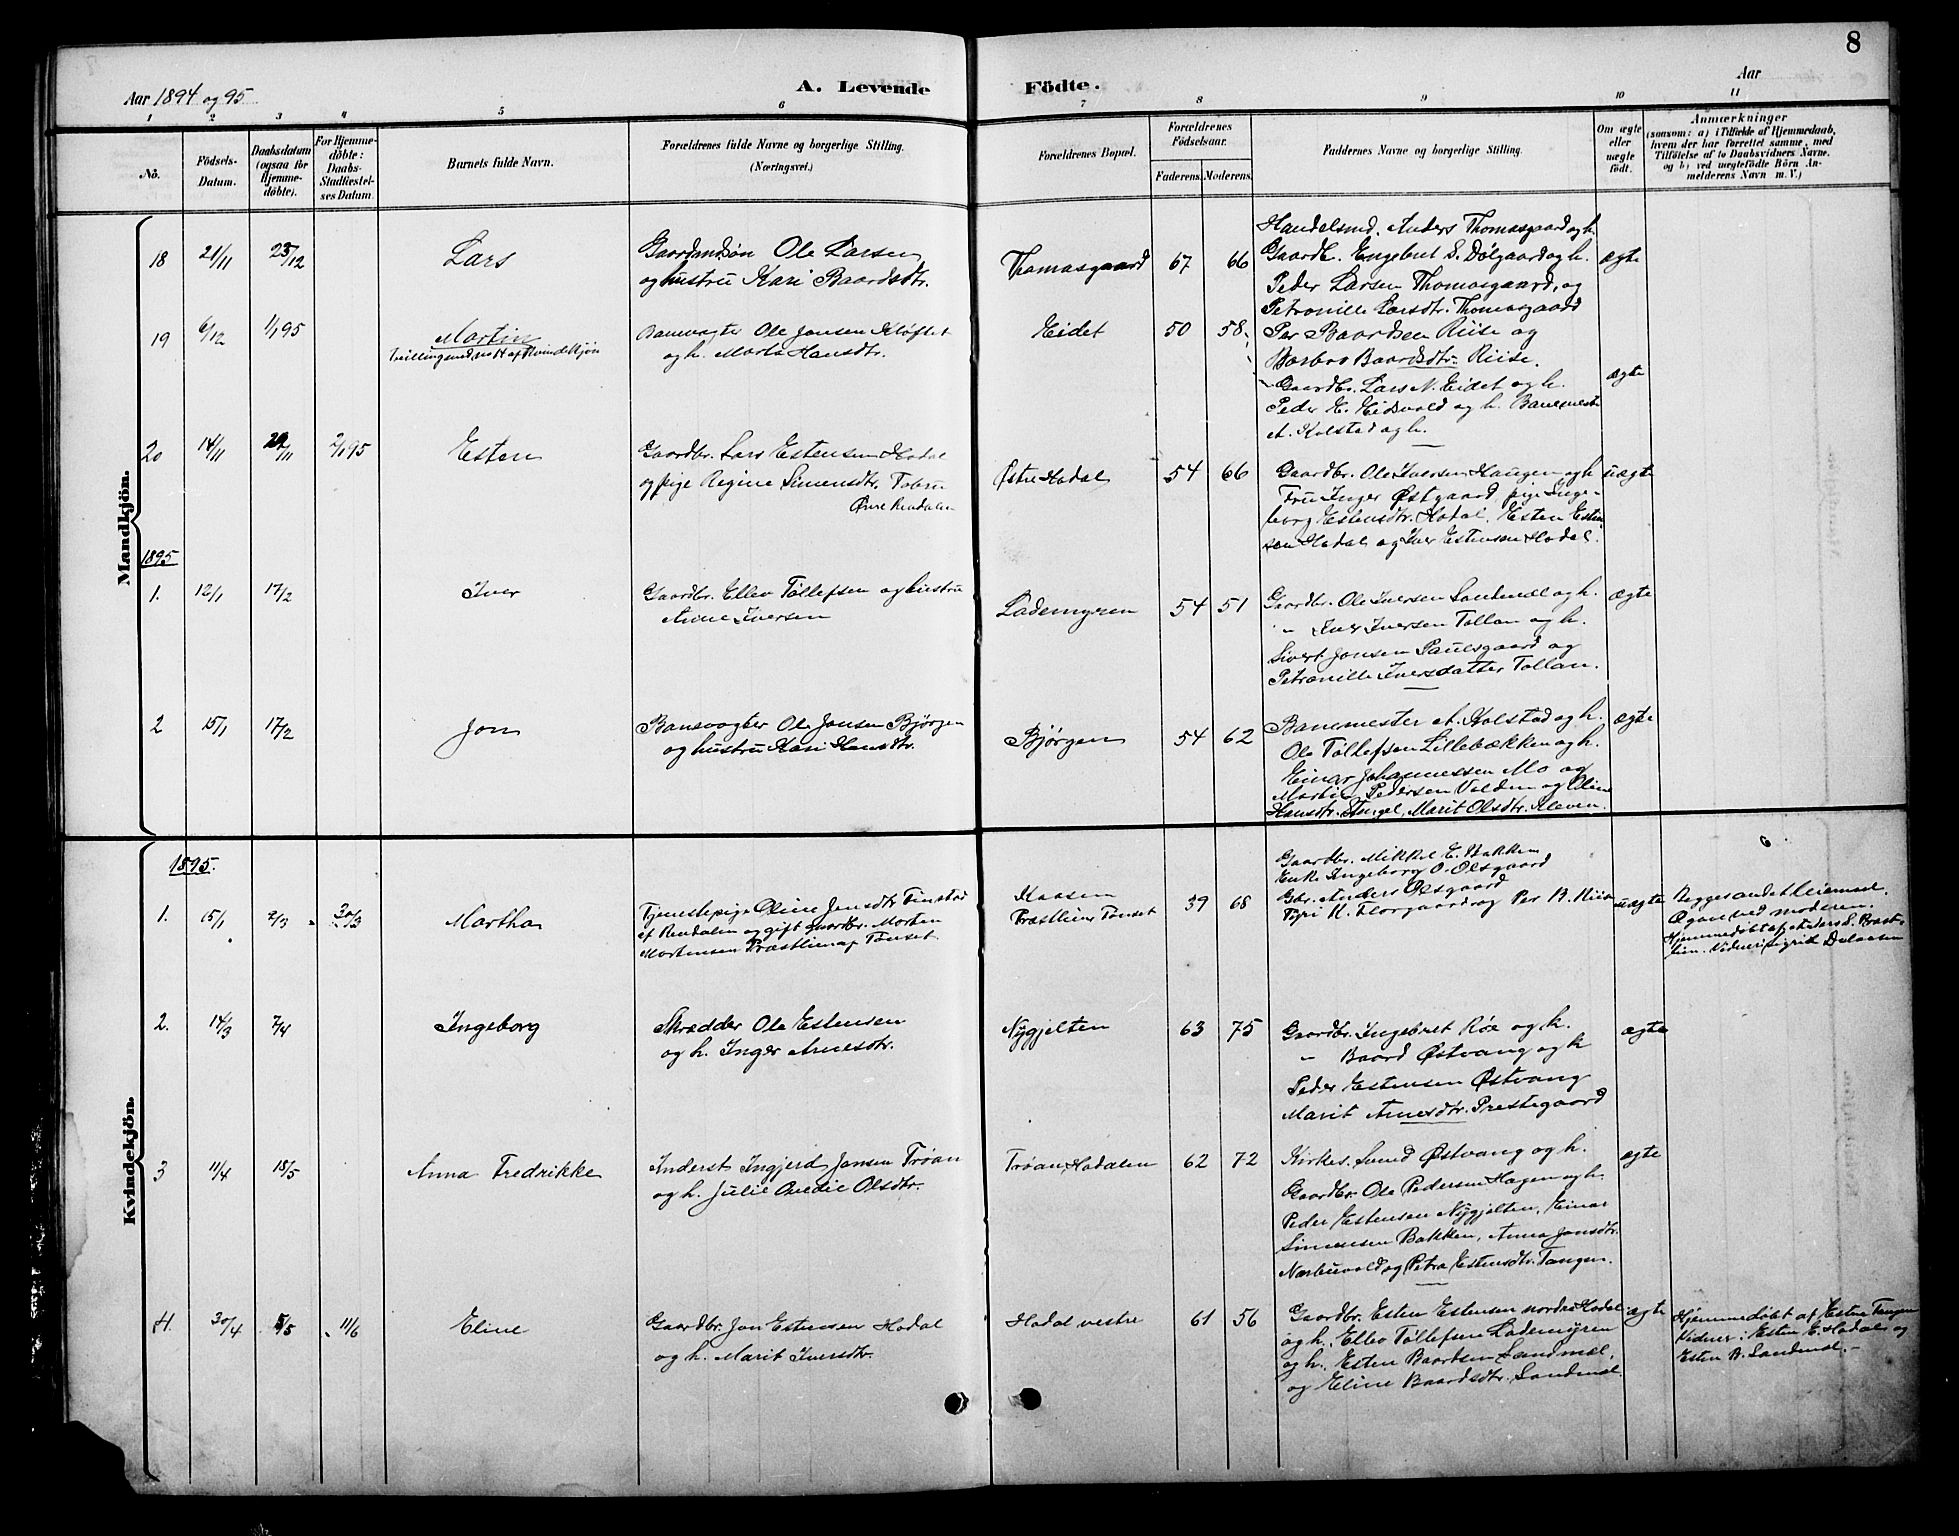 8
Aar 1894 og 95
A. Levende Fødte.
Aar
1 2 3 4 5 6 7 8 9 10 11
No.
Födsels-Datum.
Daabsdatum (ogsaa for Hjemmedöbte).
For Hjemmedöbte: Daabs-Stadfæstelses Datum.
Barnets fulde Navn.
Forældrenes fulde Navne og borgerlige Stilling.
(Næringsvei.)
Forældrenes Bopæl.
Forældrenes Födselsaar.
Faderens. Moderens.
Faddernes Navne og borgerlige Stilling.
Om ægte eller uægte födt.
Anmærkninger
(saasom: a) i Tilfælde af Hjemmedaab, hvem der har forrettet samme, med Tilföielse af to Daabsvidners Navne, og b) ved uægtefödte Börn Anmelderens Navn m. V.)
Mandkjön.
18 21/11 23/12 Lars
Gaardmandsøn Ole Larsen
og hustru Kari Baardsdtr.
Thomasgaard 67 66
Handelsmd. Anders Thomasgaard og h.
Gaardb. Engebret S. Dølgaard og h.
Peder Larsen Thomasgaard, og
Petronille Larsdtr. Thomasgaard
Per Baardsen Riise og
Barbro Baardsdtr. Riise.
ægte
19 6/12 1/1 95 Martin
Banevogter Ole Jonsen Kløftet
og h. Marta Hansdtr.
Eidet 50 58
Gaardbr. Lars N. Eidet og h.
Peder E. Eidsvold og h. Banemester
A. Kolstad og h.
ægte
20 14/11 /11 2/1 95 Esten
Gaardbr. Lars Estensen Hodal
og pige Regine Simensdtr.
Øvre Rendalen
Østre Hodal 54 66
Gaardbr. Ole Iversen Haugen og h.
Fru Inger Østgaard, pige Inge-
borg Estensdtr. Hodal, Esten Esten-
sen Hodal og Iver Estensen Hodal.
uægte
1895
1. 12/1 17/2 Iver
Gaardbr. Ellev Tollefsen og hustru
Anne Iversen
Lademyren 54 51
Gaardbr. Ole Iversen Sandmæl og h.
" Iver Iversen Tollan og h.
Sivert Jonsen Paulsgaard og
Petronille Iversdatter Tollan.
ægte
2 15/1 17/2 Jon
Banevogter Ole Jonsen Bjørgen
og hustru Kari Hansdtr.
Bjørgen 54 62
Banemester A. Kolstad og h.
Ole Tollefsen Lillebækken og h.
Einar Johannessen Mo og
Martin Pedersen Volden og Oline
Hansdtr. , Marit Olsdtr. Kleven.
ægte
Kvindekjön.
1895.
1. 15/1 2/3 30/3 Martha
Tjenestepige Oline Jonsdtr. Finstad
af Rendalen og gift gaardbr. Morten
Mortensen Præstlien af Tønset.
Præstlien Tønset 39 68
Gaardbr. Mikkel E. Bakken
Enke Ingeborg O. Olsgaard
Gbr. Anders Olsgaard
og Per B. Riise
uægte
Begges andet leiermaal.
Opgave ved moderen.
Hjemmedøbt af Anders S. Præst-
lien. Vidner:
2. 14/3 7/4 Ingeborg
Skrædder Ole Estensen
og h. Inger Arnesdtr.
Nygjelten 63 75
Gaardbr. Ingebret Røe og h.
" Baard Østvang og h
Peder Estensen Østvang
Marit Arnesdtr. Prestegaard
ægte
3 11/4 18/5 Anna Fredrikke
Inderst Ingjerd Jonsen Trøan
og h. Julie Olsdtr.
Trøan, Hodalen 62 72
Kirkes. Svend Østvang og h.
Gaardbr. Ole Pedersen Hagen og h.
Peder Estensen Nygjelten, Einar
Simensen Bakken, Anna Jonsdtr.
Narbuvold og Petra Estensdtr. Tangen.
ægte
4. 30/4 5/5 11/6 Eline
Gaardbr. Jon Estensen Hodal
og h. Marit Iversdtr.
Hodal vestre 61 56
Gaardbr. Esten Estensen nordre Hodal
og h. Ellev Tollefsen Lademyren
og h. Esten Baardsen Sandmæl,
og Eline Baardsdtr. Sandmæl
ægte
Hjemmedøbt af Esten Tangen
Vidner: Esten E. Hodal og
Esten B. Sandmæl.